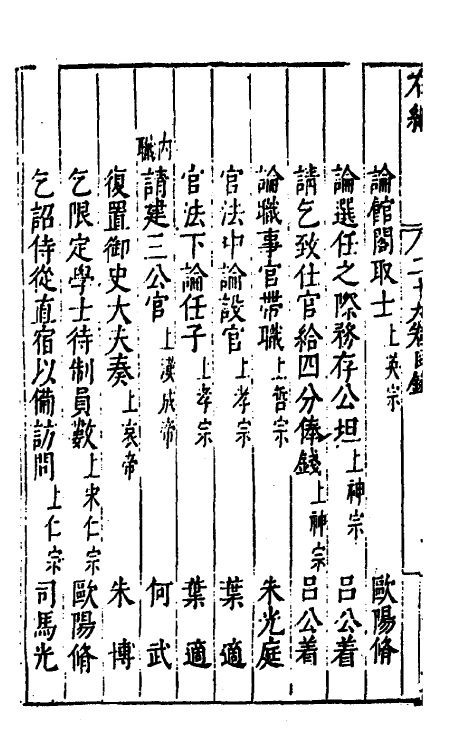 右編 二十九卷目錄
論館閣取士 上英宗 歐陽脩
論選任之際務存公坦 上神宗 呂公着
請乞致仕官給四分俸錢 上神宗 呂公着
論職事官帶職 上哲宗 朱光庭
官法中論設官 上孝宗 葉適
官法下論任子 上孝宗 葉適
內職
請建三公官 上漢成帝 何武
復置御史大夫奏 上哀帝 朱博
乞限定學士待制員數 上宋仁宗 歐陽脩
乞詔侍從直宿以備訪問 上仁宗 司馬光